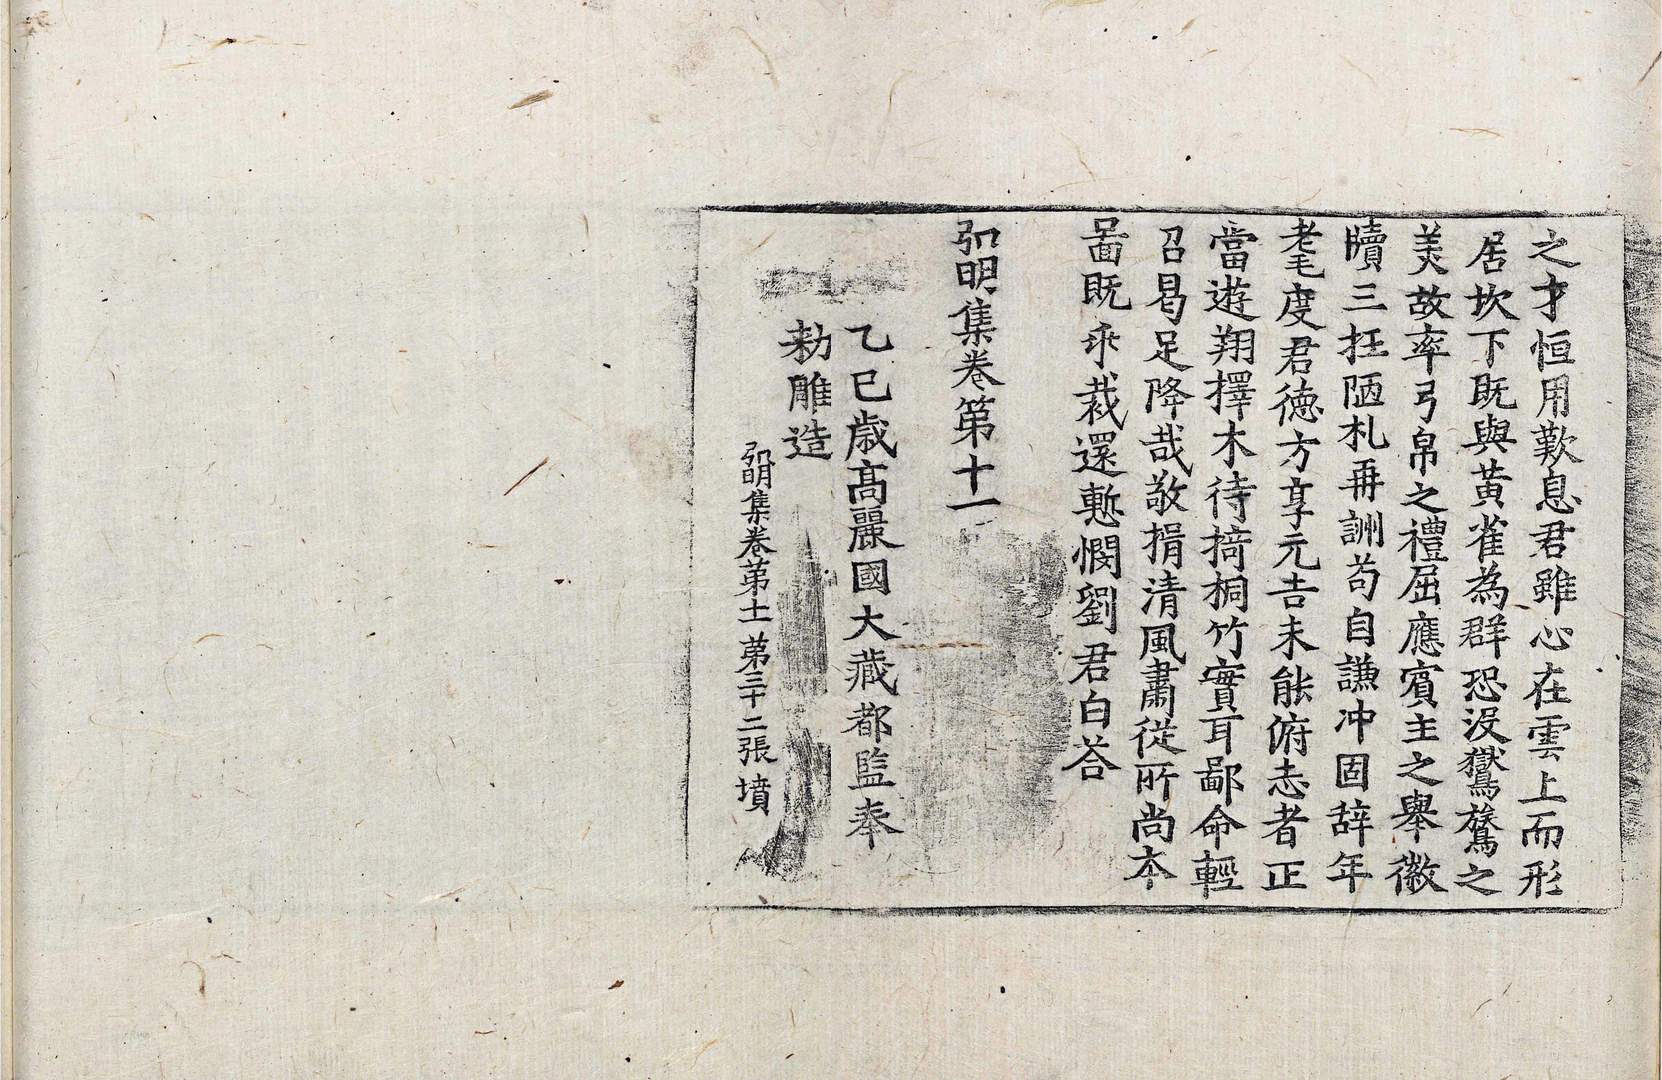 之才恒用歎息君雖心在雲上而形
居坎下既與黃雀為群恐沒鸑鷟之
美故率弓帛之禮屈應賓主之舉徽
牘三抂陋札再詶苟自謙冲固辞年
耄度君德方享元吉未能俯志者正
當遊翔擇木待掎桐竹實耳鄙命輕
召曷足降哉敬揖清風肅從所尚本
啚既乖裁還慙憫劉君白荅
弘明集卷第十一
乙巳歲高麗國大藏都監奉
勑雕造
弘明集卷第十一 第三十二張 墳